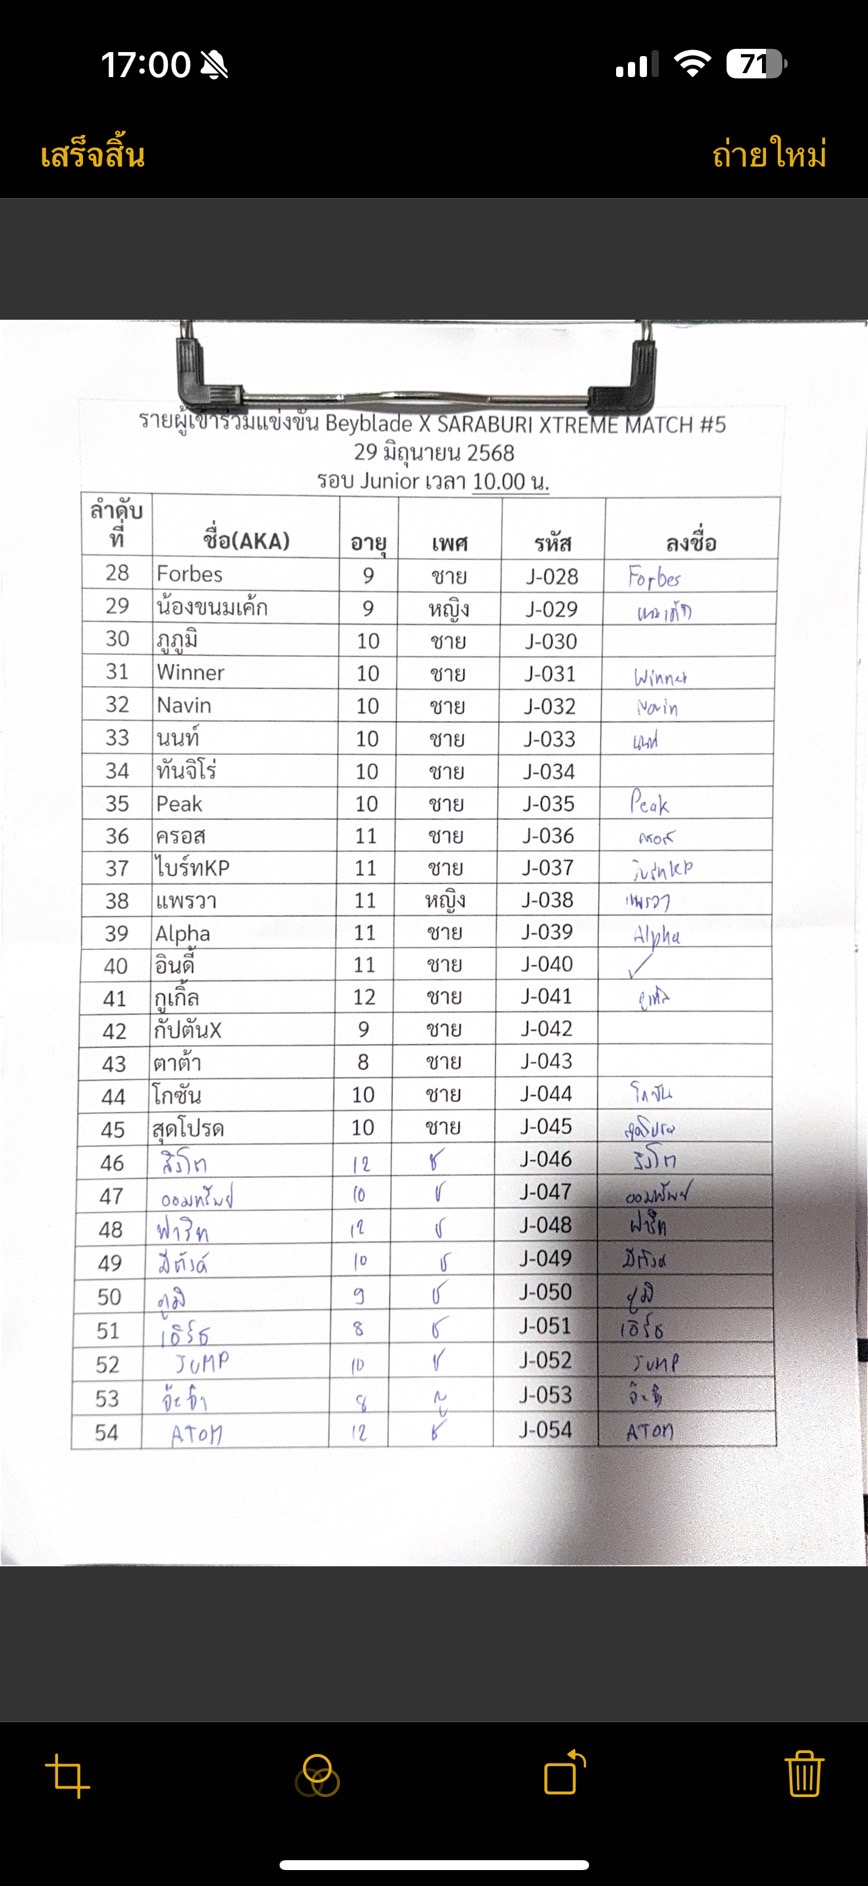 17:00
71
เสร็จสิ้น
ถ่ายใหม่
รายผู้เข้าร่วมแข่งขัน Beyblade X SARABURI XTREME MATCH #5
29 มิถุนายน 2568
รอบ Junior เวลา 10.00 น.
ลำดับที่ ชื่อ(AKA) อายุ เพศ รหัส ลงชื่อ
28 Forbes 9 ชาย J-028 Forbes
29 น้องขนมเค้ก 9 หญิง J-029
30 ภูภูมิ 10 ชาย J-030
31 Winner 10 ชาย J-031 Winner
32 Navin 10 ชาย J-032 Navin
33 นนท์ 10 ชาย J-033 นนท์
34 ทันจิโร่ 10 ชาย J-034
35 Peak 10 ชาย J-035 Peak
36 ครอส 11 ชาย J-036 ครอส
37 ไบร์ทKP 11 ชาย J-037 ไบร์ทKP
38 แพรวา 11 หญิง J-038 แพรวา
39 Alpha 11 ชาย J-039 Alpha
40 อินดี้ 11 ชาย J-040 ✓
41 กูเกิ้ล 12 ชาย J-041 กูเกิ้ล
42 กัปตันX 9 ชาย J-042
43 ตาต้า 8 ชาย J-043
44 โกซัน 10 ชาย J-044 โกซัน
45 สุดโปรด 10 ชาย J-045 สุดโปรด
46 สิงโต 12 ช J-046 สิงโต
47 ออมทรัพย์ 10 ช J-047 ออมทรัพย์
48 ฟาริท 12 ช J-048 ฟาริท
49 มีตังค์ 10 ช J-049 มีตังค์
50 ภูมิ 9 ช J-050 ภูมิ
51 เอิร์ธ 8 ช J-051 เอิร์ธ
52 JUMP 10 ช J-052 JUMP
53 จ๊ะจ๋า 8 ญ J-053
54 ATOM 12 ช J-054 ATOM